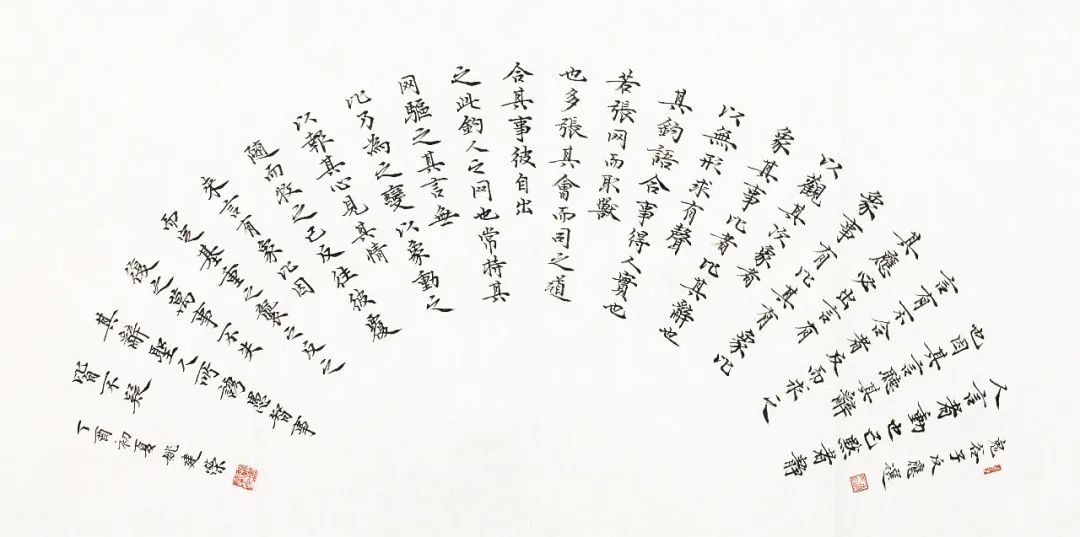 鬼谷子反應選
人言者動也己默者靜
也因其言聽其辭
言有不合者反而求之
其應必出言有
象事有比其有象比
以觀其次象者
象其事比者比其辭也
以無形求有聲
其釣語合事得人實也
若張网而取獸
也多張其會而司之道
合其事彼自出
之此釣人之网也常持其
网驅之其言無
比乃為之變以象動之
以報其心見其情
隨而牧之己反往彼覆
來言有象比因
而定基重之襲之反之
復之萬事不失
其辭聖人所誘愚智事
皆不疑
丁酉初夏姚建